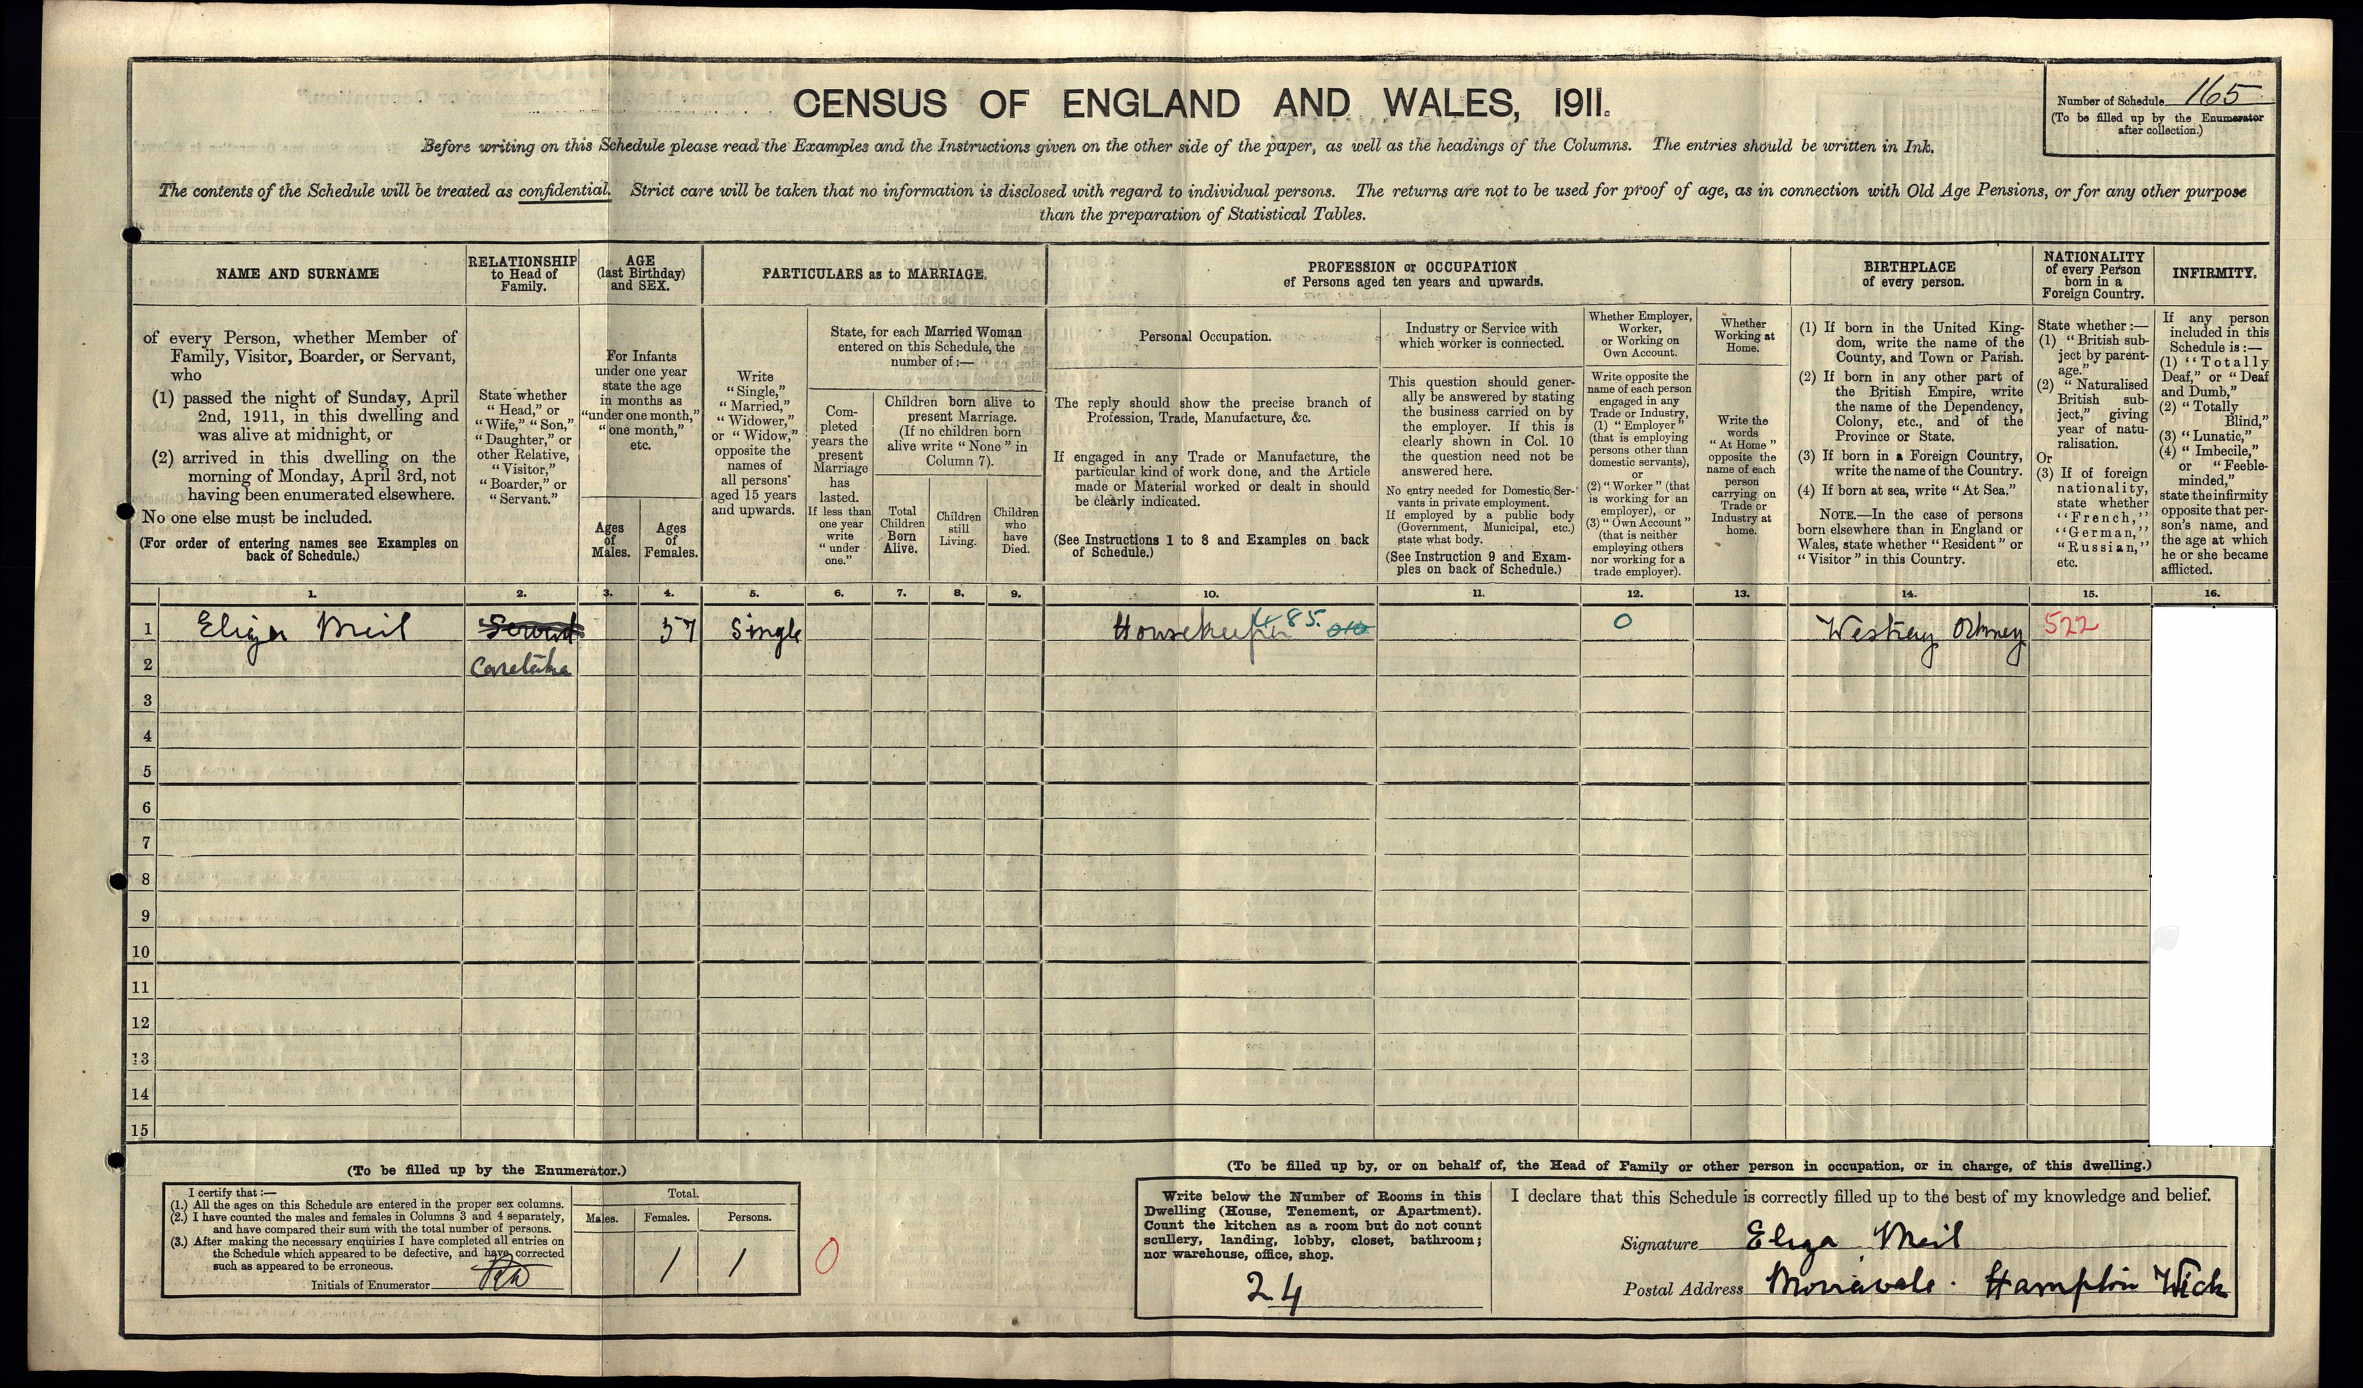 CENSUS OF ENGLAND AND WALES, 1911.
Number of Schedule 165
(To be filled up by the Enumerator
after collection.)
Before writing on this Schedule please read the Examples and the Instructions given on the other side of the paper, as well as the headings of the Columns. The entries should be written in Ink.
The contents of the Schedule will be treated as confidential. Strict care will be taken that no information is disclosed with regard to individual persons. The returns are not to be used for proof of age, as in connection with Old Age Pensions, or for any other purpose
than the preparation of Statistical Tables.
NAME AND SURNAME
of every Person, whether Member of
Family, Visitor, Boarder, or Servant,
who
(1) passed the night of Sunday, April
2nd, 1911, in this dwelling and
was alive at midnight, or
(2) arrived in this dwelling on the
morning of Monday, April 3rd, not
having been enumerated elsewhere.
No one else must be included.
(For order of entering names see Examples on
back of Schedule.)
RELATIONSHIP
to Head of
Family.
State whether
"Head," or
"Wife," "Son,"
"Daughter," or
other Relative,
"Visitor,"
"Boarder," or
"Servant."
AGE
(last Birthday)
and SEX.
For Infants
under one year
state the age
in months as
"under one month,"
"one month,"
etc.
Ages
of
Males.
Ages
of
Females.
PARTICULARS as to MARRIAGE.
Write
"Single,"
"Married,"
"Widower,"
or "Widow,"
opposite the
names of
all persons
aged 15 years
and upwards.
State, for each Married Woman
entered on this Schedule, the
number of:—
Com-
pleted
years the
present
Marriage
has
lasted.
If less than
one year
write
"under
one."
Children born alive to
present Marriage.
(If no children born
alive write "None" in
Column 7).
Total
Children
Born
Alive.
Children
still
Living.
Children
who
have
Died.
PROFESSION or OCCUPATION
of Persons aged ten years and upwards.
Personal Occupation.
The reply should show the precise branch of
Profession, Trade, Manufacture, &c.
If engaged in any Trade or Manufacture, the
particular kind of work done, and the Article
made or Material worked or dealt in should
be clearly indicated.
(See Instructions 1 to 8 and Examples on back
of Schedule.)
Industry or Service with
which worker is connected.
This question should gener-
ally be answered by stating
the business carried on by
the employer. If this is
clearly shown in Col. 10
the question need not be
answered here.
No entry needed for Domestic Ser-
vants in private employment.
If employed by a public body
(Government, Municipal, etc.)
state what body.
(See Instruction 9 and Exam-
ples on back of Schedule.)
Whether Employer,
Worker,
or Working on
Own Account.
Write opposite the
name of each person
engaged in any
Trade or Industry,
(1) "Employer"
(that is employing
persons other than
domestic servants),
or
(2) "Worker" (that
is working for an
employer), or
(3) "Own Account"
(that is neither
employing others
nor working for a
trade employer).
Whether
Working at
Home.
Write the
words
"At Home"
opposite the
name of each
person
carrying on
Trade or
Industry at
home.
BIRTHPLACE
of every person.
(1) If born in the United King-
dom, write the name of the
County, and Town or Parish.
(2) If born in any other part of
the British Empire, write
the name of the Dependency,
Colony, etc., and of the
Province or State.
(3) If born in a Foreign Country,
write the name of the Country.
(4) If born at sea, write "At Sea."
NOTE.—In the case of persons
born elsewhere than in England or
Wales, state whether "Resident" or
"Visitor" in this Country.
NATIONALITY
of every Person
born in a
Foreign Country.
State whether:—
(1) "British sub-
ject by parent-
age."
(2) "Naturalised
British sub-
ject," giving
year of natu-
ralisation.
Or
(3) If of foreign
nationality,
state whether
"French,"
"German,"
"Russian,"
etc.
INFIRMITY.
If any person
included in this
Schedule is:—
(1) "Totally
Deaf," or "Deaf
and Dumb,"
(2) "Totally
Blind,"
(3) "Lunatic,"
(4) "Imbecile,"
or "Feeble-
minded,"
state the infirmity
opposite that per-
son's name, and
the age at which
he or she became
afflicted.
1. 2. 3. 4. 5. 6. 7. 8. 9. 10. 11. 12. 13. 14. 15. 16.
1 Eliza Meil Servant 57 Single Housekeeper 485. 010 0 Westray Orkney 522
2 Caretaker
3
4
5
6
7
8
9
10
11
12
13
14
15
(To be filled up by the Enumerator.)
I certify that:—
(1.) All the ages on this Schedule are entered in the proper sex columns.
(2.) I have counted the males and females in Columns 3 and 4 separately,
and have compared their sum with the total number of persons.
(3.) After making the necessary enquiries I have completed all entries on
the Schedule which appeared to be defective, and have corrected
such as appeared to be erroneous.
Initials of Enumerator
Total.
Males. Females. Persons.
1 1
0
(To be filled up by, or on behalf of, the Head of Family or other person in occupation, or in charge, of this dwelling.)
Write below the Number of Rooms in this
Dwelling (House, Tenement, or Apartment).
Count the kitchen as a room but do not count
scullery, landing, lobby, closet, bathroom;
nor warehouse, office, shop.
24
I declare that this Schedule is correctly filled up to the best of my knowledge and belief.
Signature Eliza Meil
Postal Address Hampton Wick